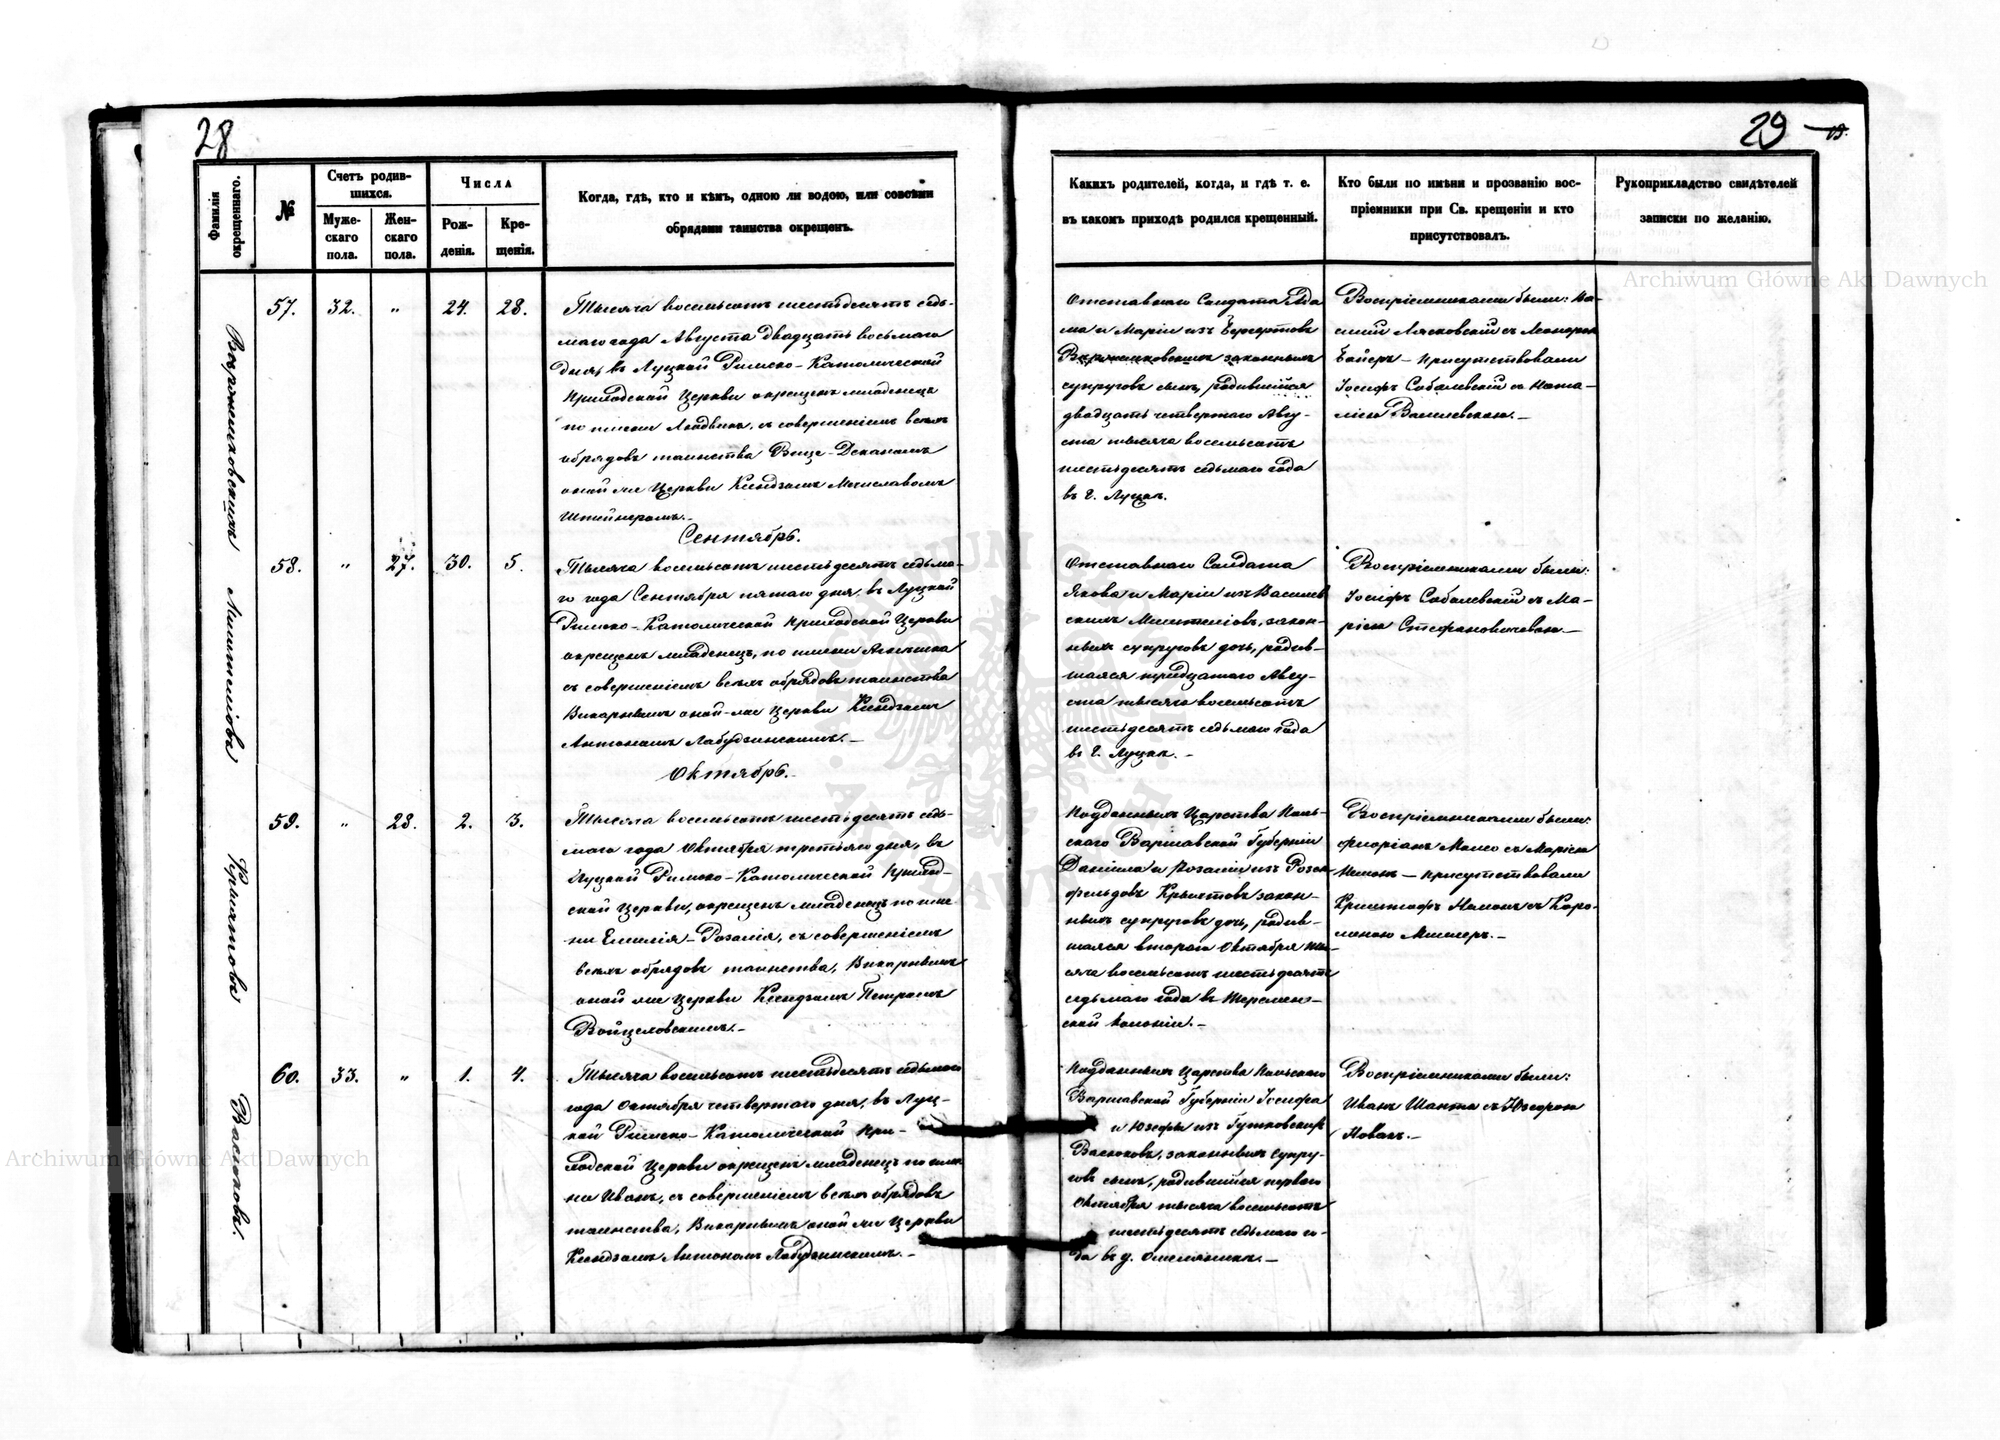 28
29
Фамилія окрещеннаго.
№
Счетъ родив-
шихся.
Муже-
скаго
пола.
Жен-
скаго
пола.
Числа
Рож-
денія.
Кре-
щенія.
Когда, гдѣ, кто и кѣмъ, одною ли водою, или совсѣми
обрядами таинства окрещенъ.
57. 32. „ 24. 28.
Тысяча восемьсотъ шестьдесятъ седь-
маго года Августа двадцать восьмаго
дня, въ Луцкой Римско-Католической
Приходской Церкви окрещенъ младенецъ
по имени Людвикъ, съ совершеніемъ всѣхъ
обрядовъ таинства Вице-Деканомъ
оной же Церкви Ксендзомъ Мечиславомъ
Штейнеромъ.-
Сентябрь.
Лиштыловъ
58. „ 27. 30. 5.
Тысяча восемьсотъ шестьдесятъ седьма-
го года Сентября пятаго дня, въ Луцкой
Римско-Католической Приходской Церкви
окрещенъ младенецъ, по имени
съ совершеніемъ всѣхъ обрядовъ таинства
Викарнымъ оной-же Церкви Ксендзомъ
Антономъ Лабудзинскимъ.-
Октябрь.
59. „ 28. 2. 3.
Тысяча восемьсотъ шестьдесятъ седь-
маго года Октября третьяго дня, въ
Луцкой Римско-Католической Приход-
ской Церкви, окрещенъ младенецъ по име-
ни Емилія-Розалія, съ совершеніемъ
всѣхъ обрядовъ таинства, Викарнымъ
оной же Церкви Ксендзомъ Петромъ
Войцеховскимъ.-
Васюковъ.
60. 33. „ 1. 4.
Тысяча восемьсотъ шестьдесятъ седьмаго
года Октября четвертаго дня, въ Луц-
кой Римско-Католической При-
ходской Церкви окрещенъ младенецъ по име-
ни Иванъ, съ совершеніемъ всѣхъ обрядовъ
таинства, Викарнымъ оной же Церкви
Ксендзомъ Антономъ Лабудзинскимъ.-
Какихъ родителей, когда, и гдѣ т. е.
въ какомъ приходѣ родился крещенный.
Кто были по имѣни и прозванію вос-
пріемники при Св. крещеніи и кто
присутствовалъ.
Рукоприкладство свидѣтелей
записки по желанію.
Отставнаго Солдата Ада-
ма и Маріи изъ
законныхъ
супруговъ сынъ, родившійся
двадцать четвертаго Авгу-
ста тысяча восемьсотъ
шестьдесятъ седьмаго года
въ г. Луцкѣ.
Воспріемниками были:
съ
- присутствовали
Іосифъ Соболевскій съ Ната-
ліею Василевскою.-
Отставнаго Солдата
Якова и Маріи изъ
закон-
ныхъ супруговъ дочь, родив-
шаяся тридцатаго Авгу-
ста тысяча восемьсотъ
шестьдесятъ седьмаго года
въ г. Луцкѣ.-
Воспріемниками были:
Іосифъ Соболевскій съ Ма-
ріею Стефановичевою.-
Подданныхъ Царства Поль-
скаго Варшавской Губерніи
Даніила и Розаліи изъ Розен-
фельдовъ закон-
ныхъ супруговъ дочь, родив-
шаяся втораго Октября ты-
сяча восемьсотъ шестьдесятъ
седьмаго года въ
ской Колоніи.-
Воспріемниками были:
Флоріанъ съ Маріею
- присутствовали
Кристофъ съ Каро-
линою Миллеръ.-
Подданныхъ Царства Польскаго
Варшавской Губерніи Іосифа
и Юзефы изъ Гутковскихъ
Васюковъ, законныхъ супру-
говъ сынъ, родившійся перваго
Октября тысяча восемьсотъ
шестьдесятъ седьмаго го-
да въ д.
Воспріемниками были:
Иванъ Шанта съ Юзефою
Новакъ.-
Archiwum Główne Akt Dawnych
Archiwum Główne Akt Dawnych